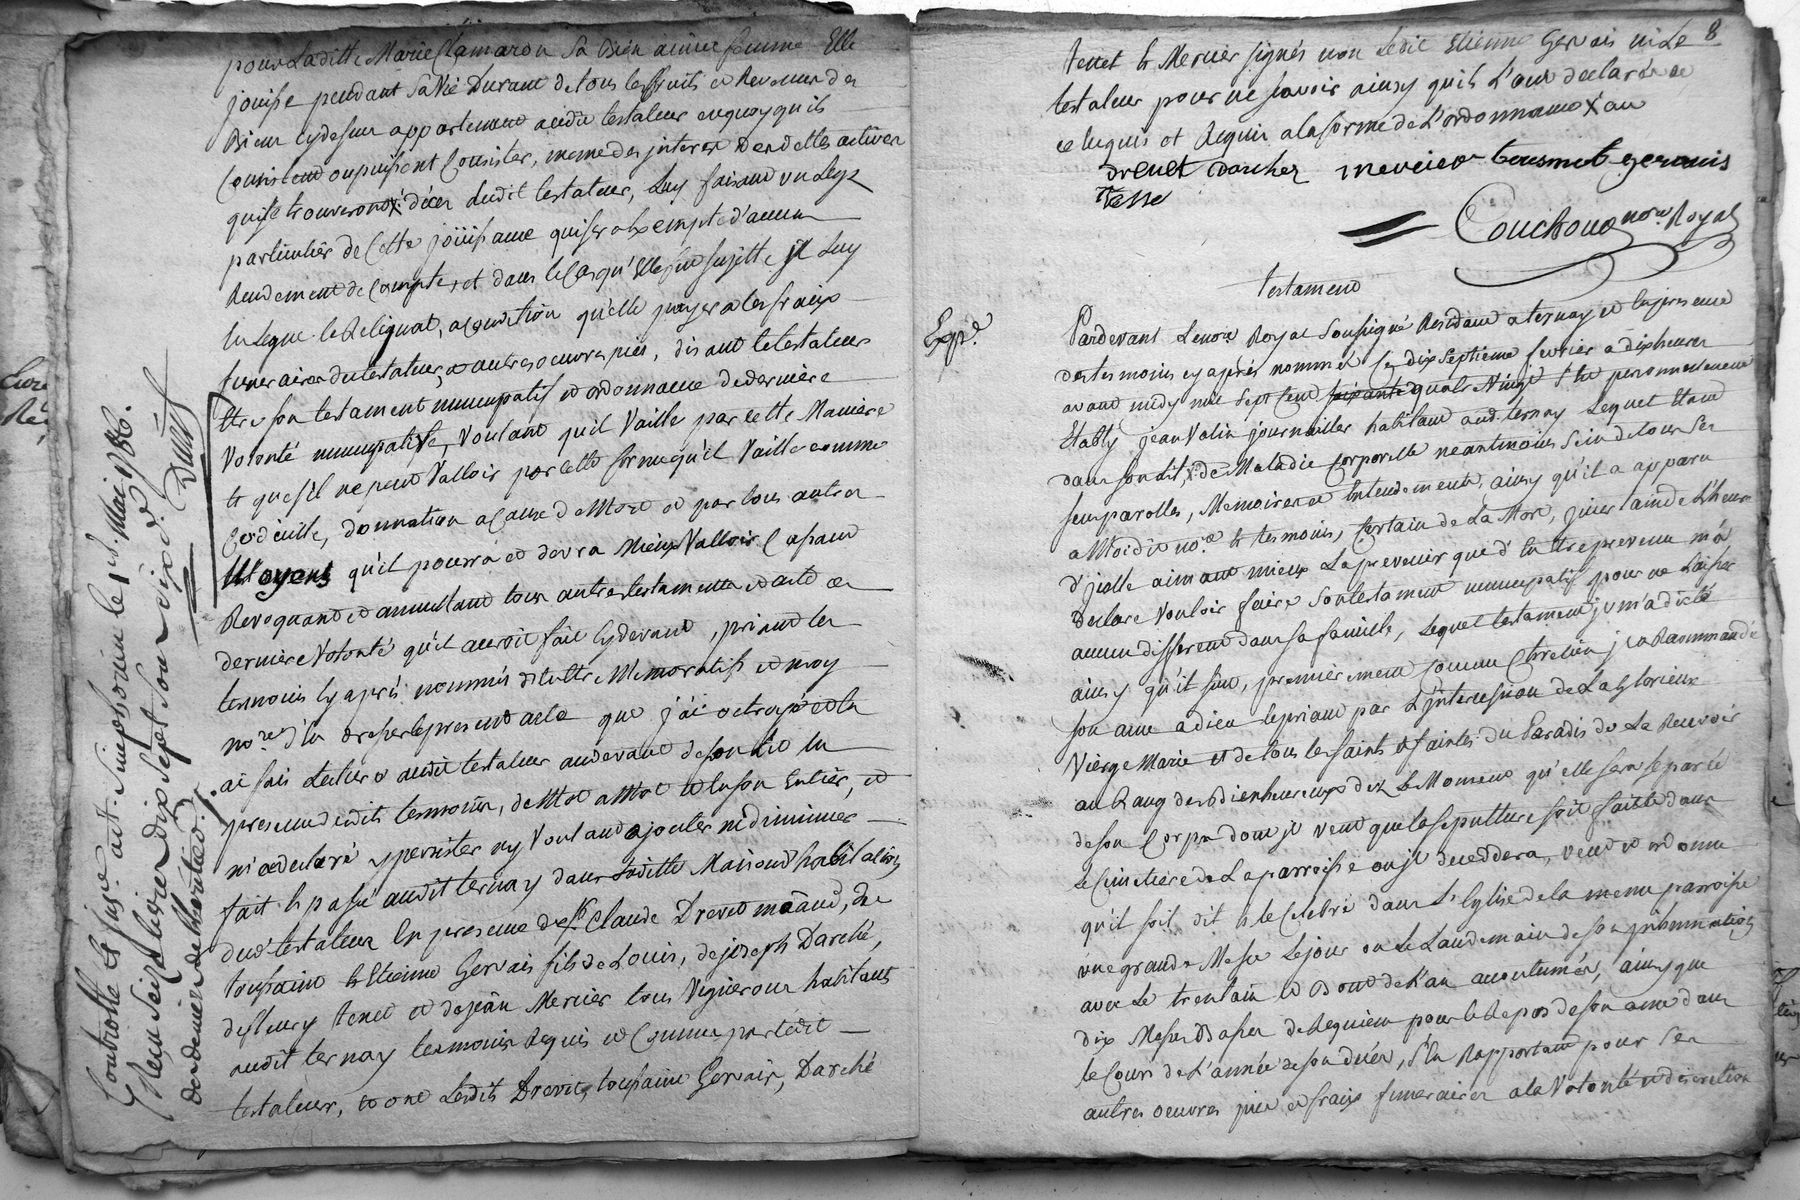 pour Laditte Marie Clamaron sa bien aimée femme Elle
jouisse pendant sa vie Durant de tous les fruits et Revenus des
Biens cydessus appartenant audit testateur enquoy qu'ils
Consistent ou puissent Consister, meme des jnterets dends dettes actives
qui se trouveront X décès dudit testateur, Luy faisant un Legs
particulier de Cette joüissance qui sera Exempte d'aucun
Rendement de Compte, et dans le Cas qu'Elle fut sujette jl Luy
En Legue le Reliquat, a condition qu'elle payera les fraix
funeraires du testateur, et autres oeuvres pies, disant le testateur
Etre son testament nuncupatif et ordonnance de derniere
Volonté nuncupative, voulant qu'il Vaille par cette Maniere
et que s'il ne peut Valloir par cette forme qu'il Vaille comme
Codicille, donnation a Cause de Mort et par tous autres
Moyens qu'il pourra et devra Mieux Valloir, Cassant
Revoquant et annullant tous autres testaments et actes de
derniere Volonté qu'il auroit fait Cy devant, priant les
temoins Cy aprés nommés d'Etre Memoratifs et moy
no.re d'En dresser le present acte que j'ai octroyé et En
ai fait Lecture audit testateur audevant de son Lit En
presence desdits temoins, de Mot a Mot et En son Entier, et
m'a declaré y persister ny Voulant ajouter ni diminuer
fait et passé audit ternay dans Laditte Maison d'habitation
dud. testateur En presence de s.r Claude Drevet m and, de
toussaint et Etienne Gervais fils de Louis, de joseph Darché,
de fleury tenet et de jean Mercier tous Vignerons habitants
audit ternay temoins Requis et Connus par ledit
testateur, et ont Lesdits Drevet, toussaint Gervais, Darché
Controllé et jnsi. a St. Simphorien le 1er Mai 1786.
Reçu Seize livres dix sept sous six d.
dix deniers
Expe.
8
tenet et Mercier signés non Ledit Etienne Gervais ni Le
testateur pour ne savoir ainsy qu'ils L'ont declaré de
ce Enquis et Requis a la forme de L'ordonnance X au
drevet darchez mercier tousint gervais
Tesne
Couchoud no.re Royal
testament
Pardevant Le no.re Royal Soussigné Residant a ternay et En presence
des temoins cy aprés nommés Ce dix septieme fevrier a dix heures
avant midy mil sept Cent soixante quatre Vingt S Est personnellement
Etably jean Valin journallier habitant aud. ternay Lequel Etant
dans son Lit, de Maladie Corporelle neantmoins Sein de tous ses
sens parolles, Memoires et Entendements, ainsy qu'il a apparu
a Moidit no.re et temoins, Certain de La Mort, jncertain de L'heure
d'jcelle aimant mieux La prevenir que d'En Etre prevenu m'a
declaré Vouloir faire Son testament nuncupatif pour ne Laisser
aucun differend dans sa famille, Lequel testament jl m'a dicté
ainsy qu'il suit, premierement Comme Chretien jl a Recommandé
son ame a dieu le priant par L'jntercession de La Glorieuse
Vierge Marie et de tous les Saints et saintes du Paradis de La Recevoir
au Rang des Bienheureux dez Le Moment qu'elle sera separée
de son Corps dont jl veut que la Sepulture soit faitte dans
Le Cimetiere de La parroisse ou jl deceddera, veut et ordonne
qu'il soit dit et Celebré dans L'Eglise de la meme parroisse
une grande Messe Le jour ou Le Landemain de son jnhumation
avec Le trentain et Bout de L'an accoutumés, ainsy que
dix Messes Basses de Requiem pour le Repos de son ame dans
le Cours de L'année de son décès, s'En Rapportant pour ses
autres oeuvres pies et fraix funeraires a la Volonté et discretion